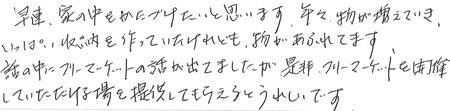 早速、家の中をかたづけたいと思います。年々、物が増えていき、
いっぱい収納を作っていたけれども、物があふれてます。
話の中にフリーマーケットの話が出てましたが是非フリーマーケットを開催
していただける場を提供してもらえるとうれしいです。